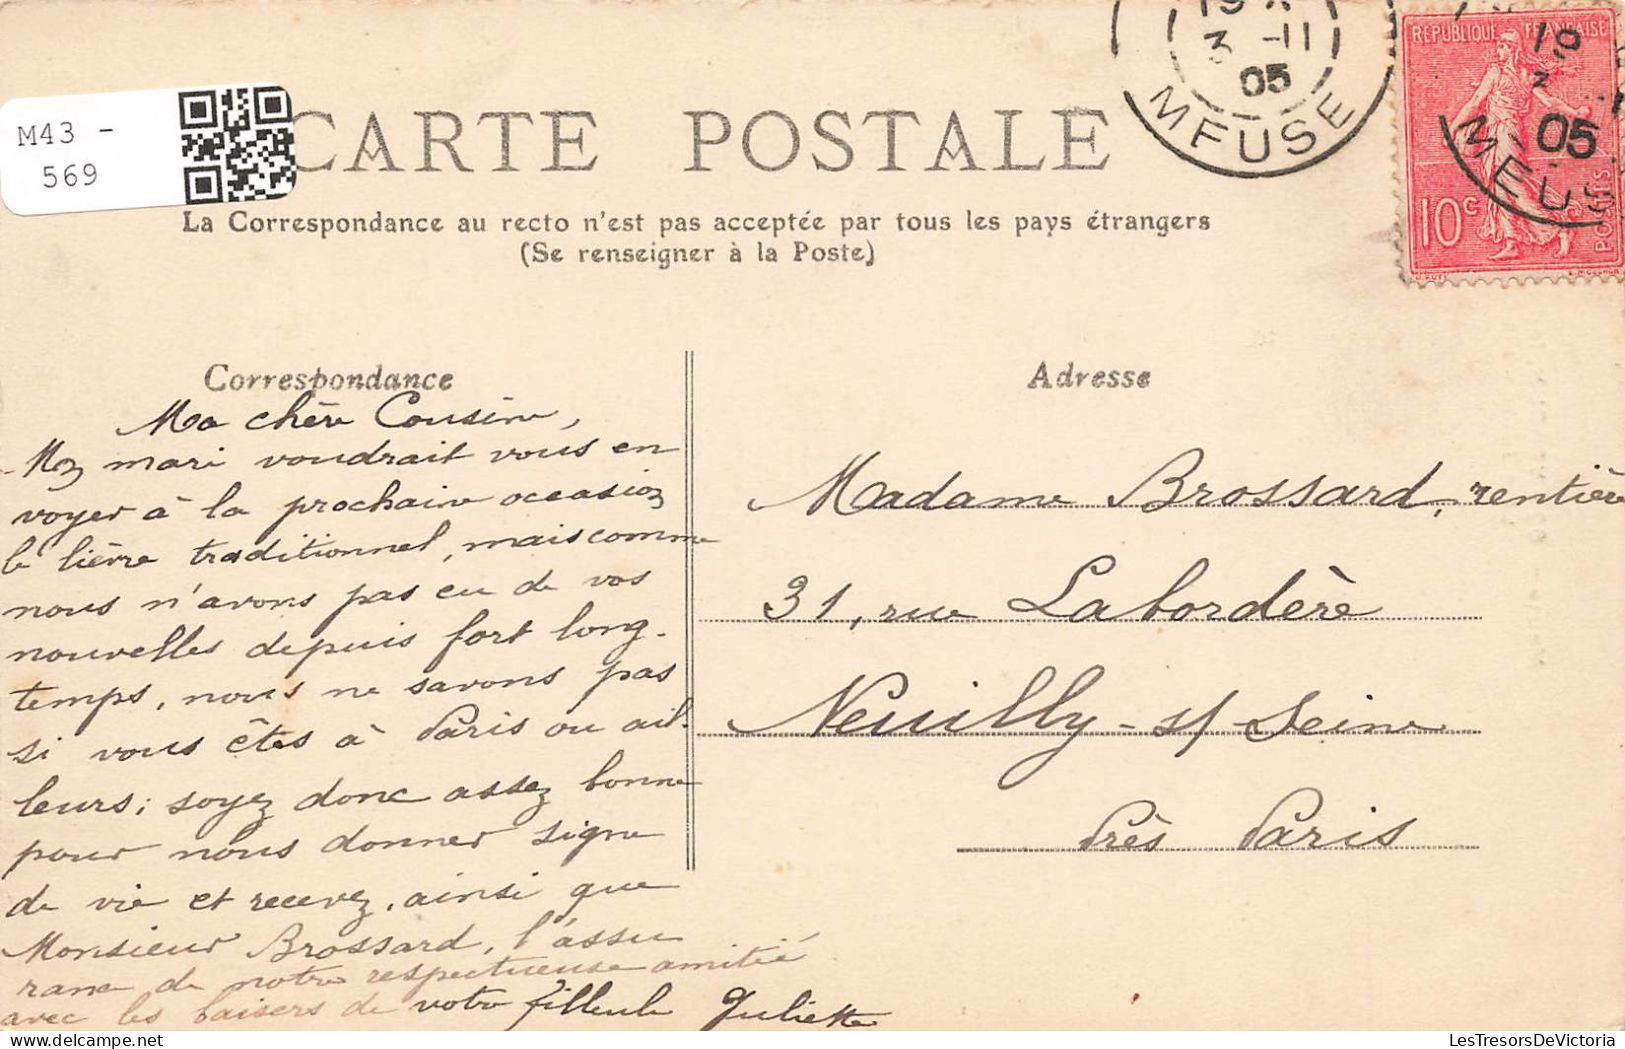 M43 -
569
CARTE POSTALE
La Correspondance au recto n'est pas acceptée par tous les pays étrangers
(Se renseigner à la Poste)
3 -11
05
MEUSE
REPUBLIQUE FRANÇAISE
10c
POSTES
05
MEUS
Correspondance
Ma chère Cousine,
Mon mari voudrait vous en
voyer à la prochaine occasion
le lièvre traditionnel, mais comme
nous n'avons pas eu de vos
nouvelles depuis fort long-
temps, nous ne savons pas
si vous êtes à Paris ou ail-
leurs; soyez donc assez bonne
pour nous donner signe
de vie et recevez, ainsi que
Monsieur Brossard, l'assu
rance de notre respectueuse amitié
avec les baisers de votre filleule Juliette
Adresse
Madame Brossard, rentière
31, rue Labordère
Neuilly-s/ Seine
Près Paris
LesTresorsDeVictoria